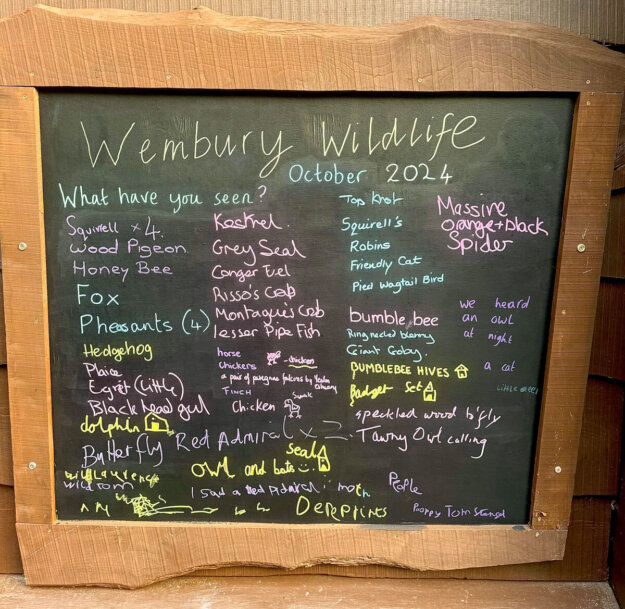 Wembury Wildlife
October 2024
What have you seen?
Squirrell x 4.
Wood Pigeon
Honey Bee
Fox
Pheasants (4)
Hedgehog
Plaice
Egret (Little)
Black head gul
dolphin
Butterfly Red Admiral x 2
wild
wild tom
Kestrel.
Grey Seal
Conger Eel
Risso's Crab
Montague's Crab
lesser Pipe Fish
horse
chickers - chicken
a pair of peregrine falcons by
FINCH
Chicken
Seal
Owl and bats
I saw a red admiral moth
Top knot
Squirell's
Robins
Friendly Cat
Pied Wagtail Bird
bumble bee
Ring necked blenny
Giant Goby.
BUMBLEBEE HIVES
Badger Set
speckled wood b'fly
Tawny Owl calling
People
Massive
orange + black
Spider
we heard
an owl
at night
a cat
little
Poppy Tom